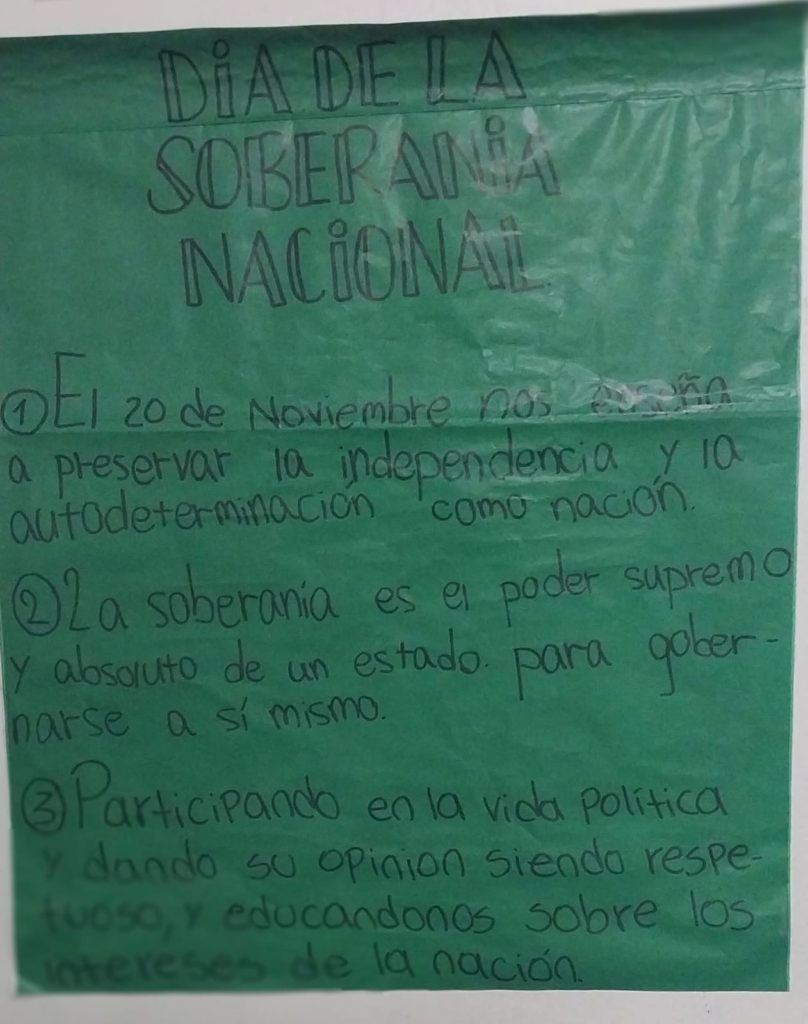 DiA DE LA
SOBERANiA
NACiONAL
① El 20 de Noviembre nos enseña
a preservar la independencia y la
autodeterminación como nación.
② La soberanía es el poder supremo
y absoluto de un estado. para gober-
narse a sí mismo.
③ Participando en la vida política
y dando su opinion siendo respe-
tuoso, y educandonos sobre los
intereses de la nación.